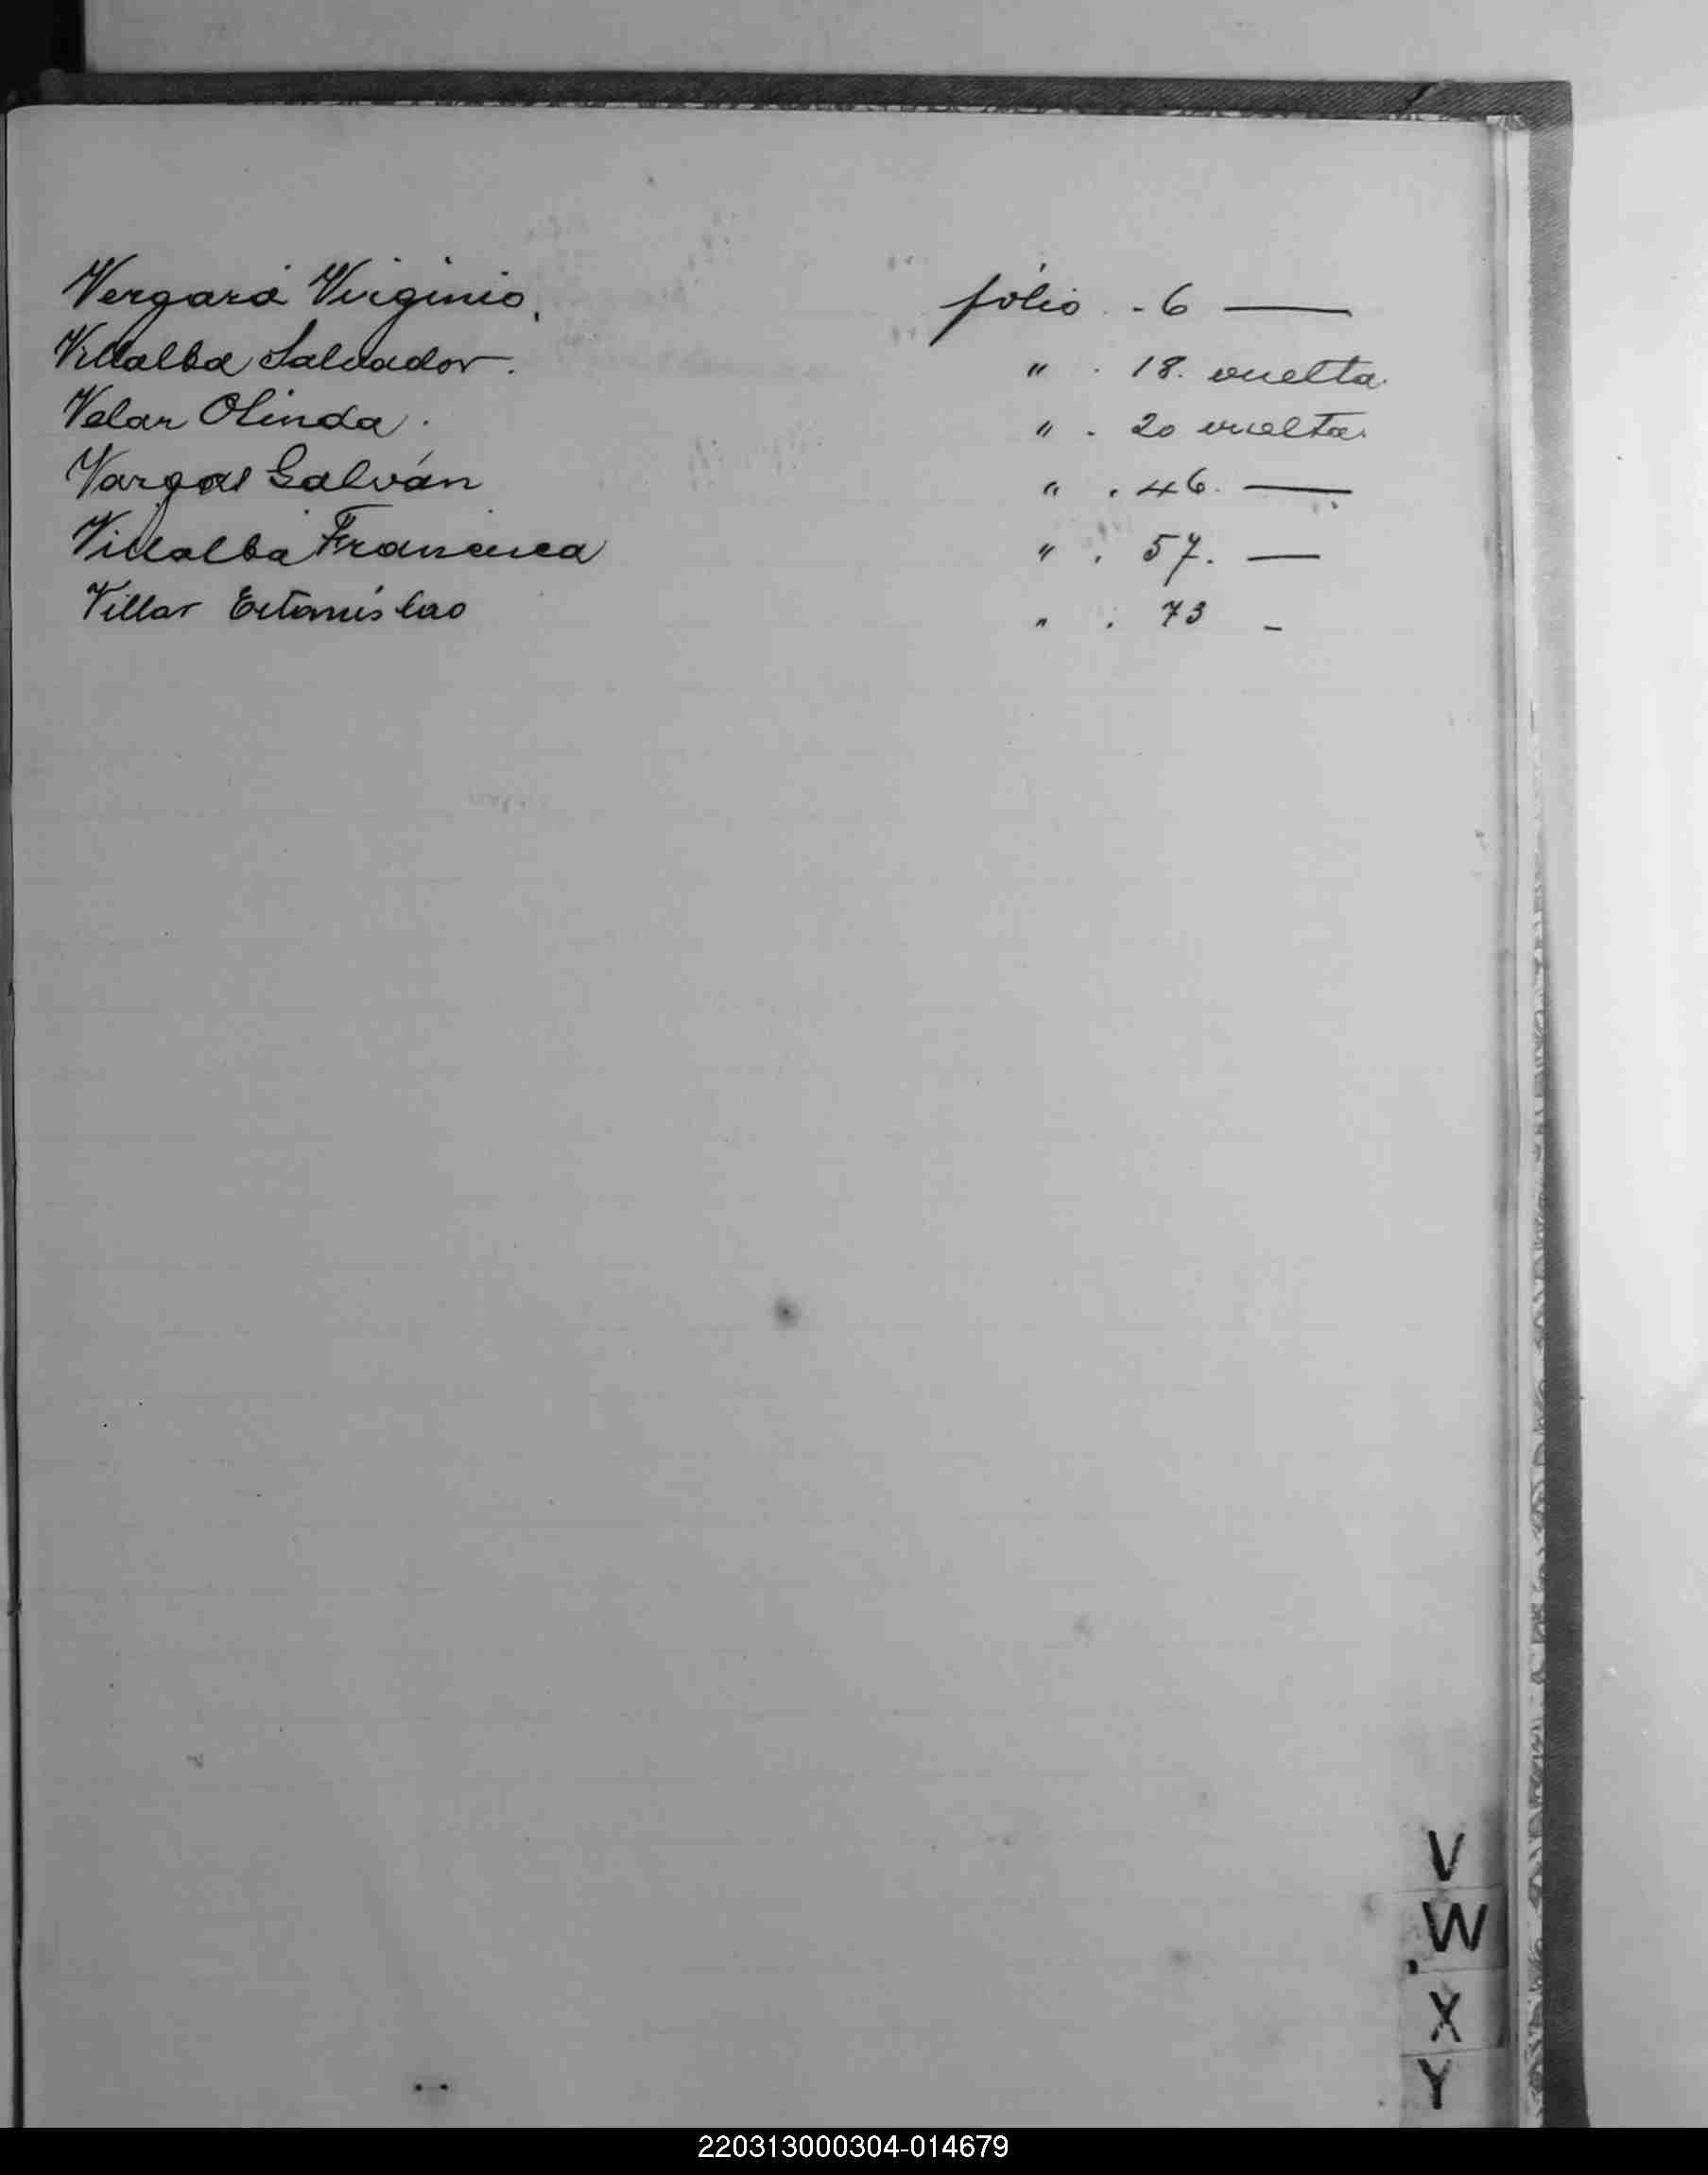 Vergara Virginio. folio - 6 —
Villalba Salvador. " . 18. vuelta.
Velar Olinda. " . 20 vuelta.
Vargas Galván " . 46. —
Villalba Francisca " . 57. —
Villar Estanislao " . 73 -
V
W
X
Y
220313000304-014679